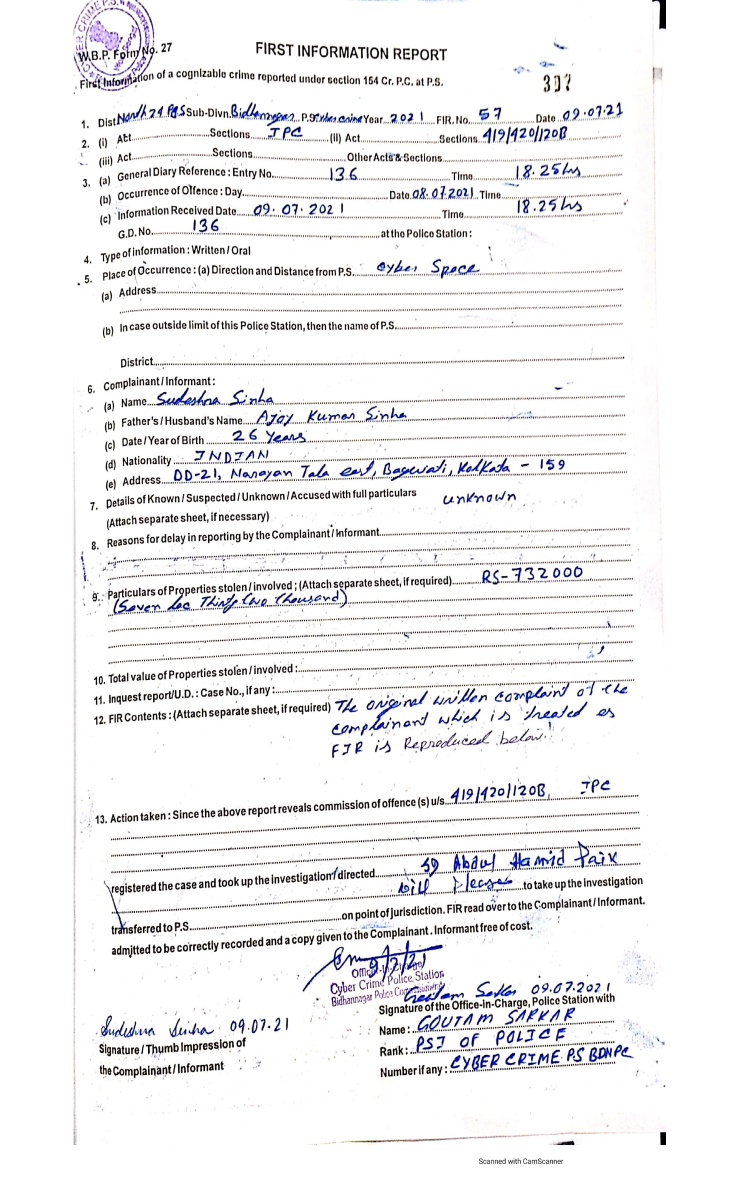 CYBER CRIME P.S.
W.B.P. Form No. 27
FIRST INFORMATION REPORT
First Information of a cognizable crime reported under section 154 Cr. P.C. at P.S.
1. Dist North 24 PGS Sub-Divn. Bidhannagar P.S. Cyber crime Year 2021 FIR. No. 57 Date 09.07.21
2. (i) Act Sections IPC (ii) Act Sections 419/420/120B
(iii) Act Sections Other Acts & Sections
3. (a) General Diary Reference : Entry No. 136 Time 18.25 hrs
(b) Occurrence of Offence : Day Date 08.07.2021 Time
(c) Information Received Date 09.07.2021 Time 18.25 hrs
G.D. No. 136 at the Police Station :
4. Type of information : Written / Oral
5. Place of Occurrence : (a) Direction and Distance from P.S. Cyber Space
(a) Address
(b) In case outside limit of this Police Station, then the name of P.S.
District
6. Complainant / Informant :
(a) Name Sudeshna Sinha
(b) Father's / Husband's Name Ajoy Kumar Sinha
(c) Date / Year of Birth 26 Years
(d) Nationality INDIAN
(e) Address DD-21, Narayan Tala east, Baguiati, Kolkata - 159
7. Details of Known / Suspected / Unknown / Accused with full particulars unknown
(Attach separate sheet, if necessary)
8. Reasons for delay in reporting by the Complainant / Informant
9. Particulars of Properties stolen / involved ; (Attach separate sheet, if required) RS-732000
(Seven Lac Thirty two thousand)
10. Total value of Properties stolen / involved :
11. Inquest report / U.D. : Case No., if any :
12. FIR Contents : (Attach separate sheet, if required) The original written complaint of the
complainant which is treated as
FIR is Reproduced below.
13. Action taken : Since the above report reveals commission of offence (s) u/s. 419/420/120B, IPC
registered the case and took up the investigation / directed SI Abdul Hamid Paik
will please to take up the investigation
transferred to P.S. on point of Jurisdiction. FIR read over to the Complainant / Informant.
admitted to be correctly recorded and a copy given to the Complainant. Informant free of cost.
9/7/21
Cyber Crime Police Station
Bidhannagar Police Commissionerate
Goutam Sarkar 09.07.2021
Signature of the Office-In-Charge, Police Station with
Sudeshna Sinha 09.07.21
Signature / Thumb Impression of
the Complainant / Informant
Name : GOUTAM SARKAR
Rank : PSI OF POLICE
Number if any : CYBER CRIME PS BDNPC
Scanned with CamScanner